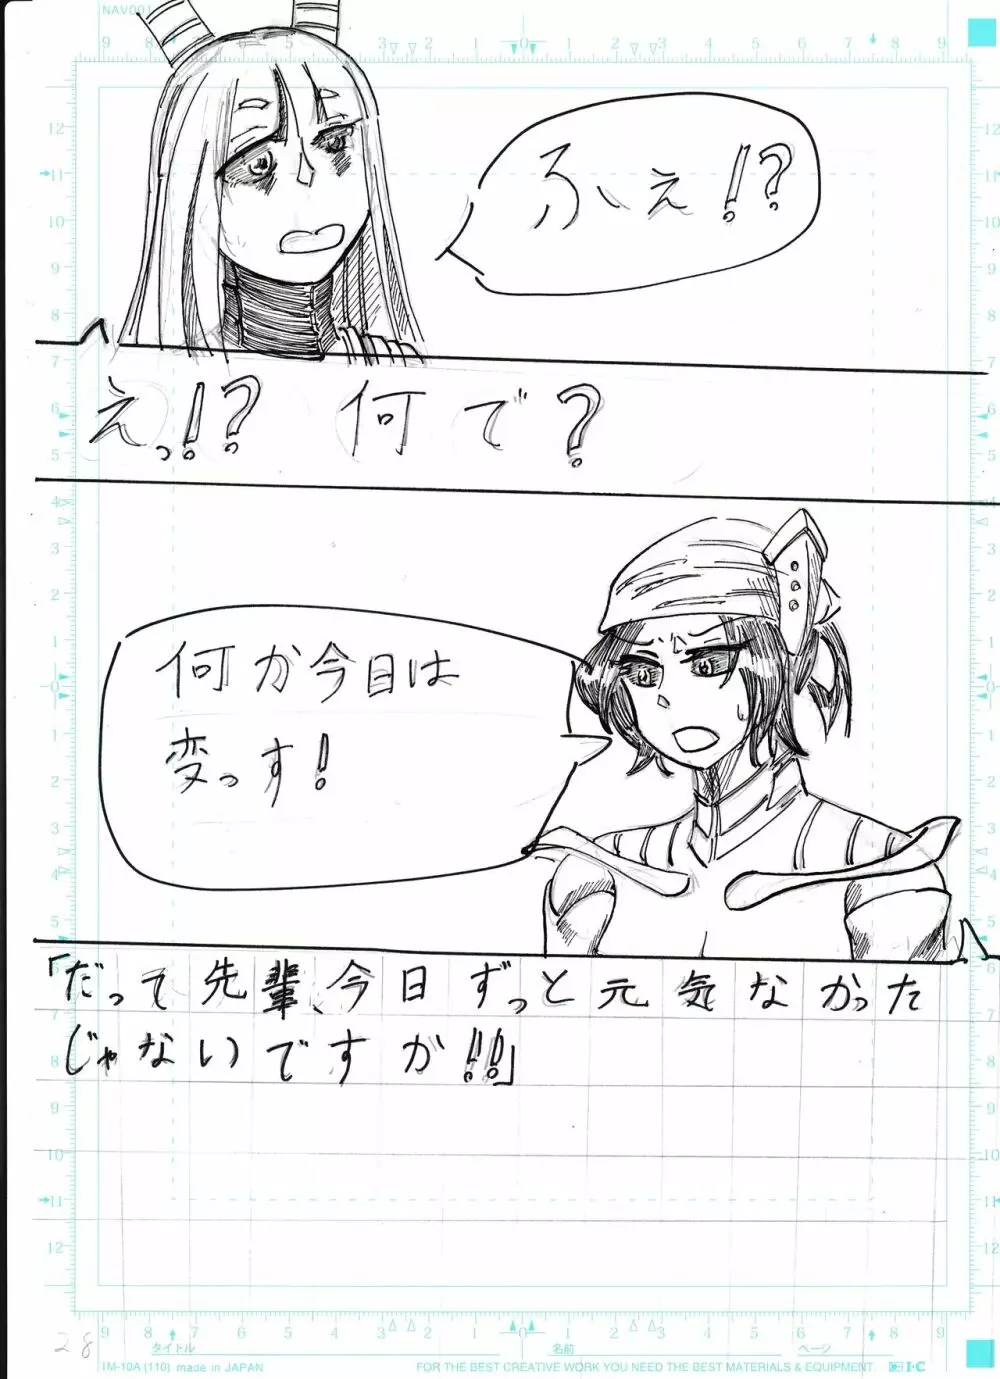 NAV001
ふぇ!?
えっ!? 何で?
何か今日は
変っす!
「だって先輩、今日ずっと元気なかった
じゃないですか!!」
28
タイトル 名前 ページ
IM-10A (110) made in JAPAN FOR THE BEST CREATIVE WORK YOU NEED THE BEST MATERIALS & EQUIPMENT. I·C